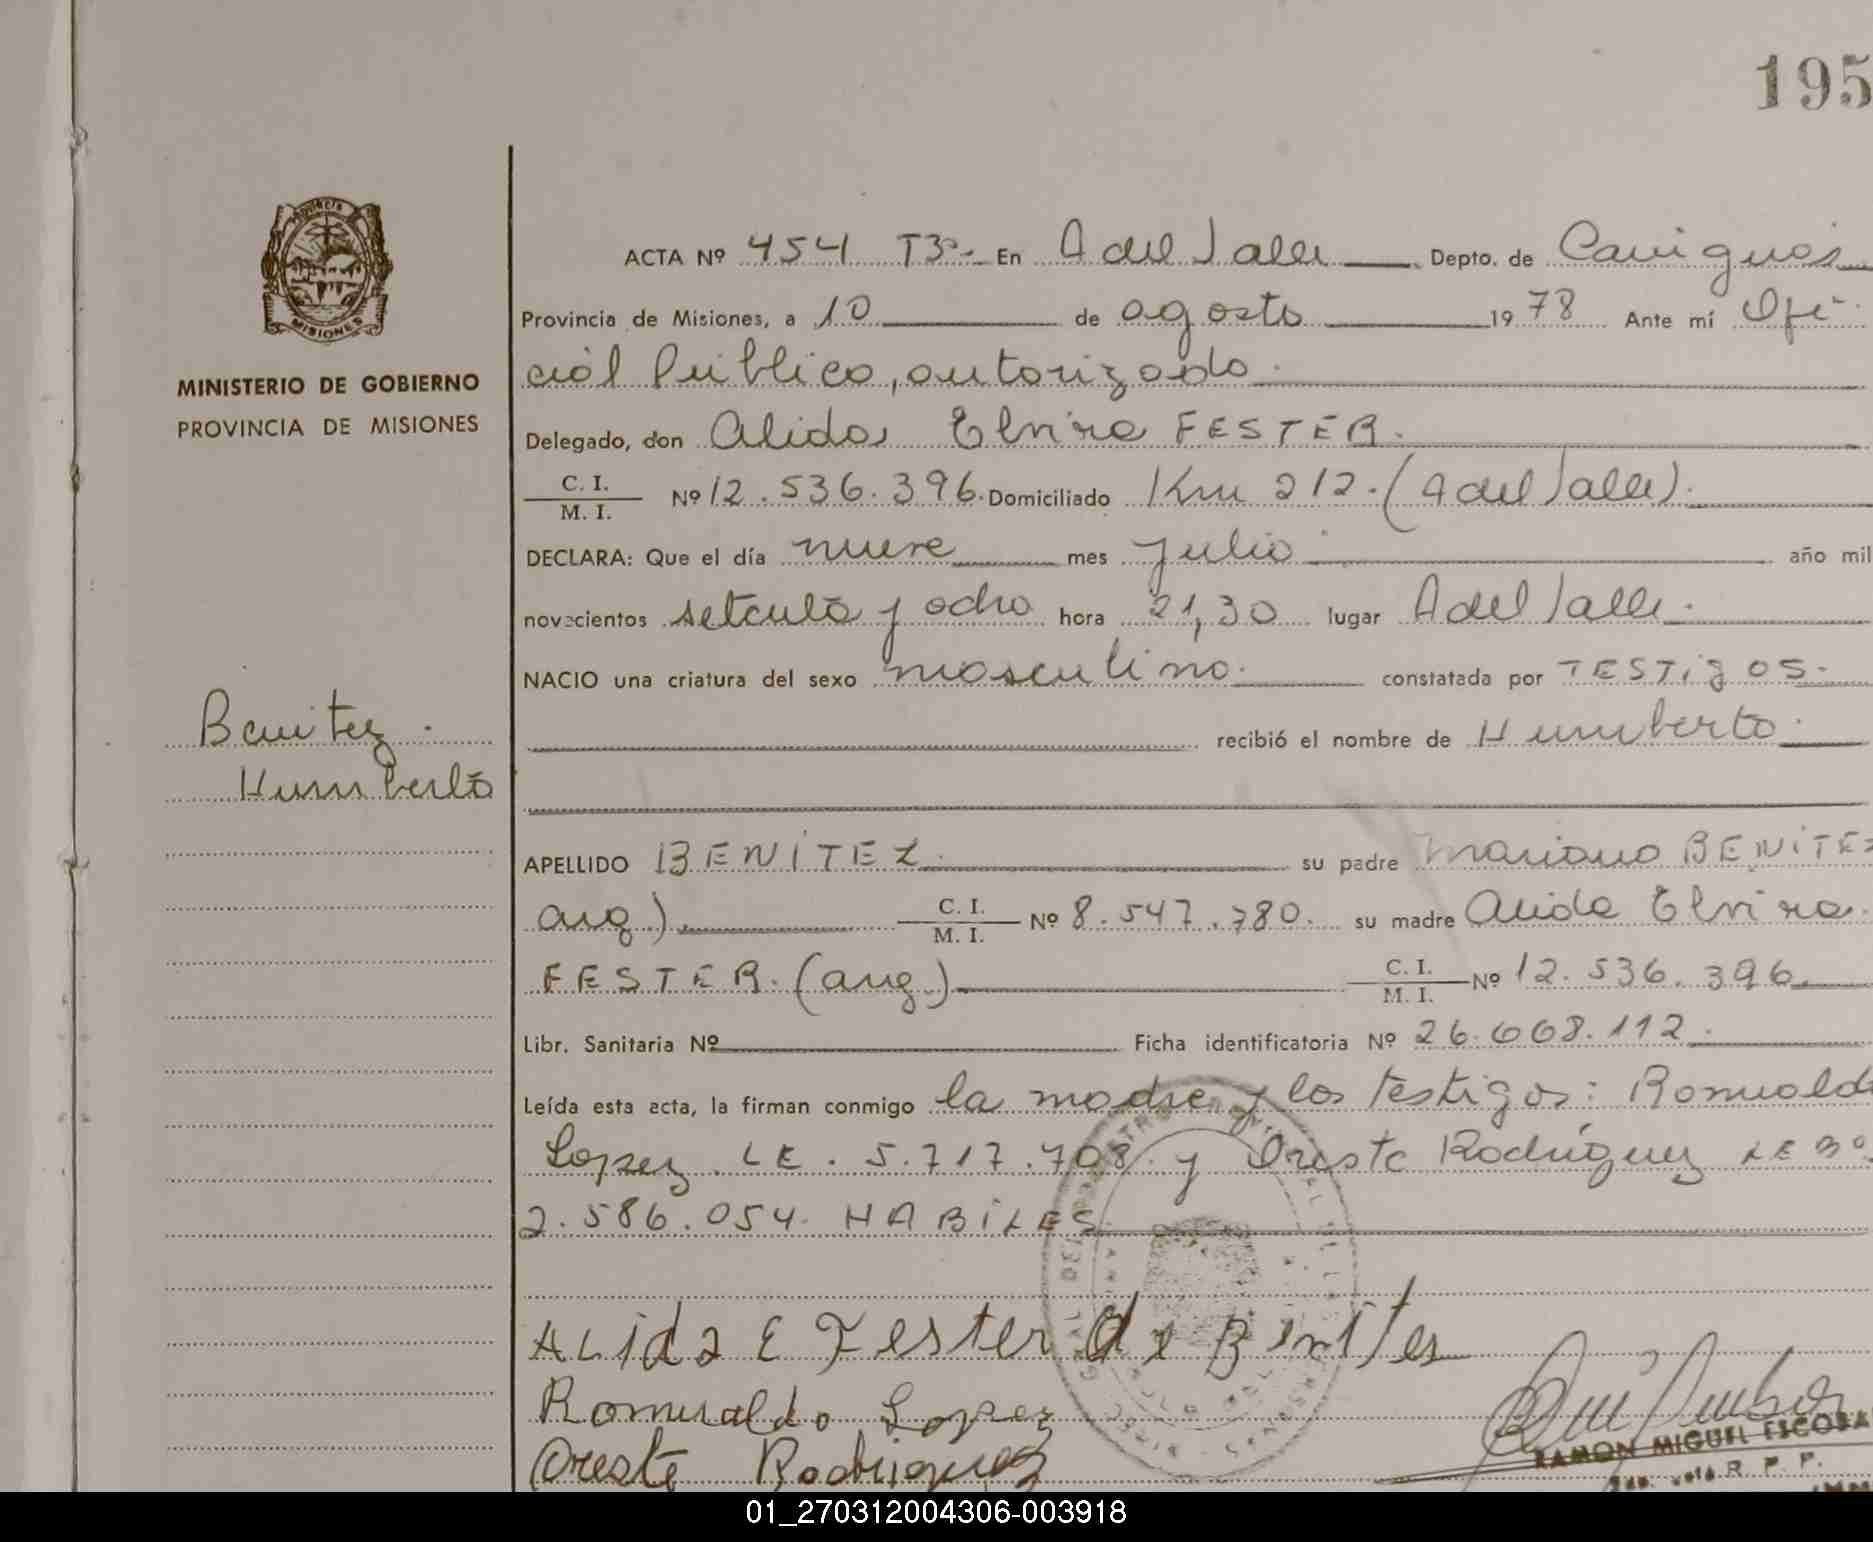 195
ACTA Nº 454 T3º- En A del Valle Depto. de Cainguás
Provincia de Misiones, a 10 de agosto 1978 Ante mí Ofi-
cial Público, autorizado.
MINISTERIO DE GOBIERNO
PROVINCIA DE MISIONES
Delegado, don Alida Elvira FESTER.
C. I.
M. I. Nº 12.536.396. Domiciliado Km 212. (A del Valle).
DECLARA: Que el día nueve mes julio año mil
novecientos setenta y ocho hora 21,30 lugar A del Valle.
NACIO una criatura del sexo masculino. constatada por TESTigOS.
Benitez.
Humberto
recibió el nombre de Humberto.
APELLIDO BENITEZ. su padre Mariano BENITEZ
arg.) C. I.
M. I. Nº 8.547.780. su madre Alida Elvira
FESTER. (arg.) C. I.
M. I. Nº 12.536.396.
Libr. Sanitaria Nº Ficha identificatoria Nº 26.668.112.
Leída esta acta, la firman conmigo la madre y los testigos: Romuald
Lopez. LE. 5.717.708. y Oreste Rodriguez LE
2.586.054. HABILES
ALida E Fester de Benites
Romualdo Lopez
Oreste Rodriguez
RAMON MIGUEL ESCOBA
R. P. P.
MISIONES
01_270312004306-003918